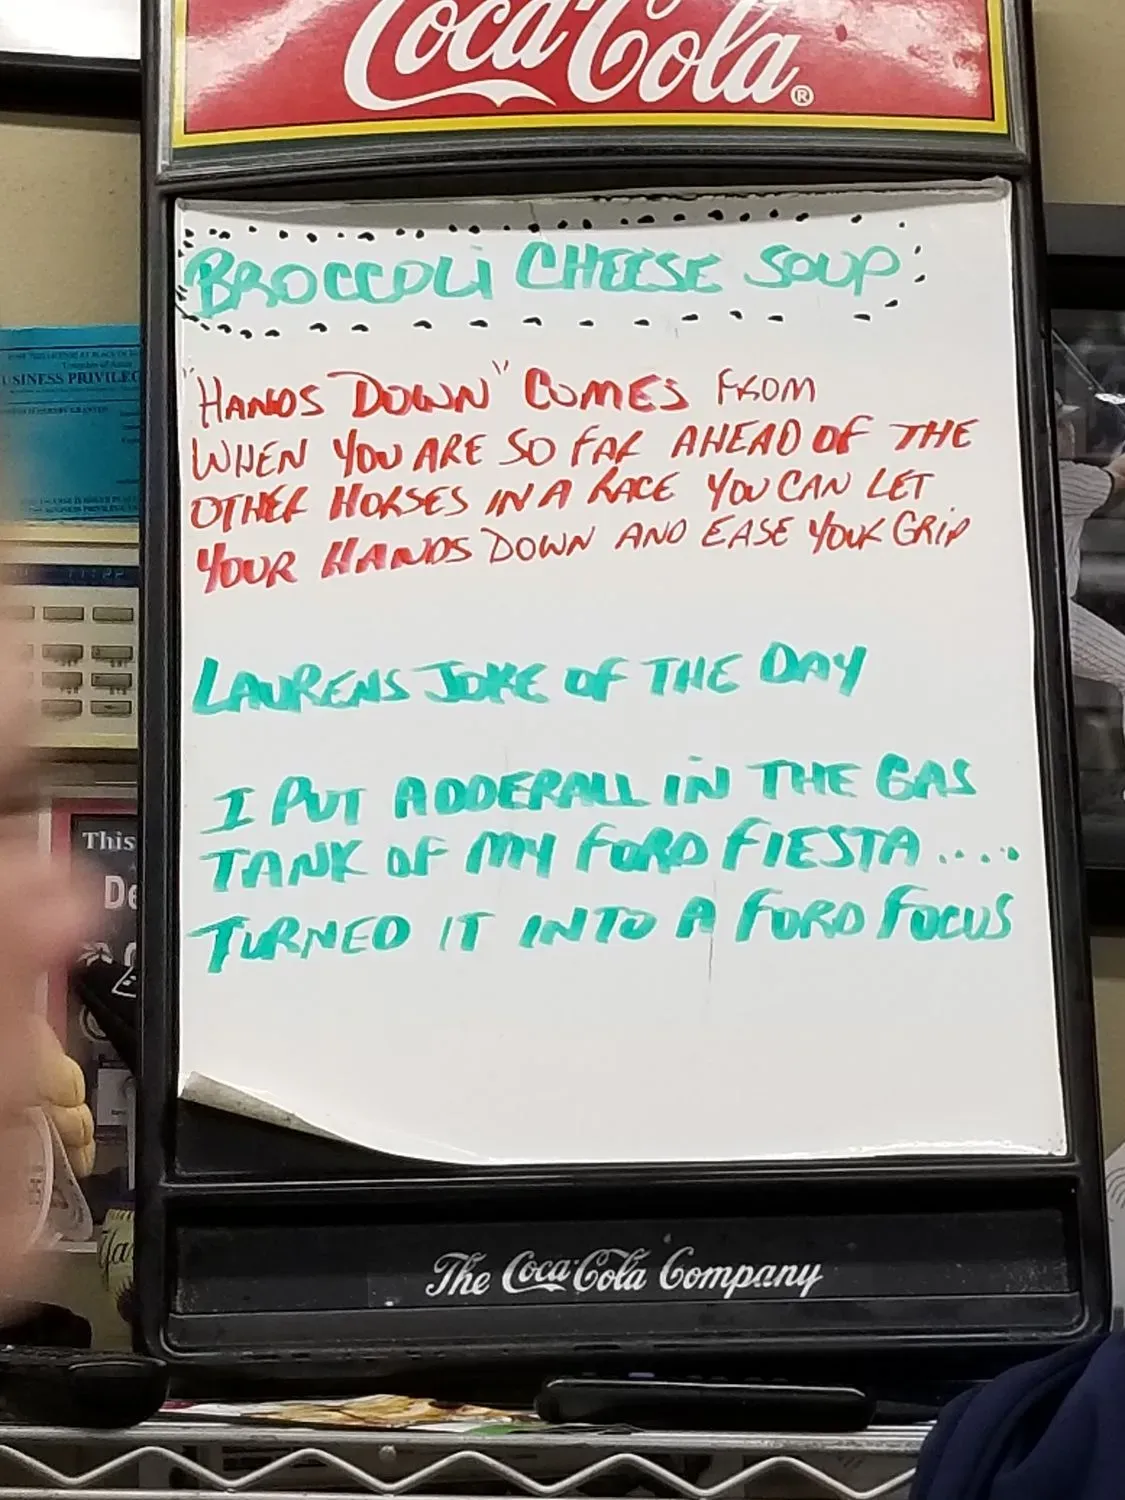 Coca-Cola®
BROCCOLI CHEESE SOUP
"HANDS DOWN" COMES FROM
WHEN YOU ARE SO FAR AHEAD OF THE
OTHER HORSES IN A RACE YOU CAN LET
YOUR HANDS DOWN AND EASE YOUR GRIP
USINESS PRIVILEG
LAURENS JOKE OF THE DAY
I PUT ADDERALL IN THE GAS
TANK OF MY FORD FIESTA....
TURNED IT INTO A FORD FOCUS
This
De
The Coca-Cola Company